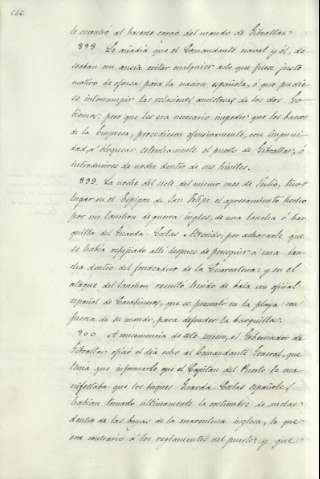 le encontró al hacerse cargo del mando de Gibraltar.
898. Le añadía que el Comandante naval y él, de-
seaban con ansia evitar cualquier acto que fuese justo
motivo de ofensa para la nación española, ó que pudie-
se interrumpir las relaciones amistosas de los dos Go-
biernos; pero que les era necesario impedir que los barcos
de la Empresa, procediesen ofensivamente, con impuni-
dad, á bloquear estrechamente el puerto de Gibraltar, é
introducirse de noche dentro de sus límites.
899. La noche del siete del mismo mes de Julio, tuvo
lugar en el Espigon de San Felipe el apresamiento hecho
por un lanchon de guerra ingles, de una lancha ó bar-
quilla del Guarda-Costas Atrevido; por achacarle que
se había refugiado allí despues de perseguir á una lan-
cha dentro del fondeadero de la Cuarentena; y en el
ataque del lanchon resultó herido de bala un oficial
español de Carabineros, que se presentó en la playa con
fuerza de su mando, para defender la barquilla.
900. A consecuencia de este suceso, el Gobernador de
Gibraltar ofició el dia ocho al Comandante General, que
tenía que informarle que el Capitan del Puerto le ma-
nifestaba que los buques Guarda-Costas españoles,
habían tomado últimamente la costumbre de anclar
dentro de las boyas de la marcatura inglesa, lo que
era contrario á los reglamentos del puerto y que